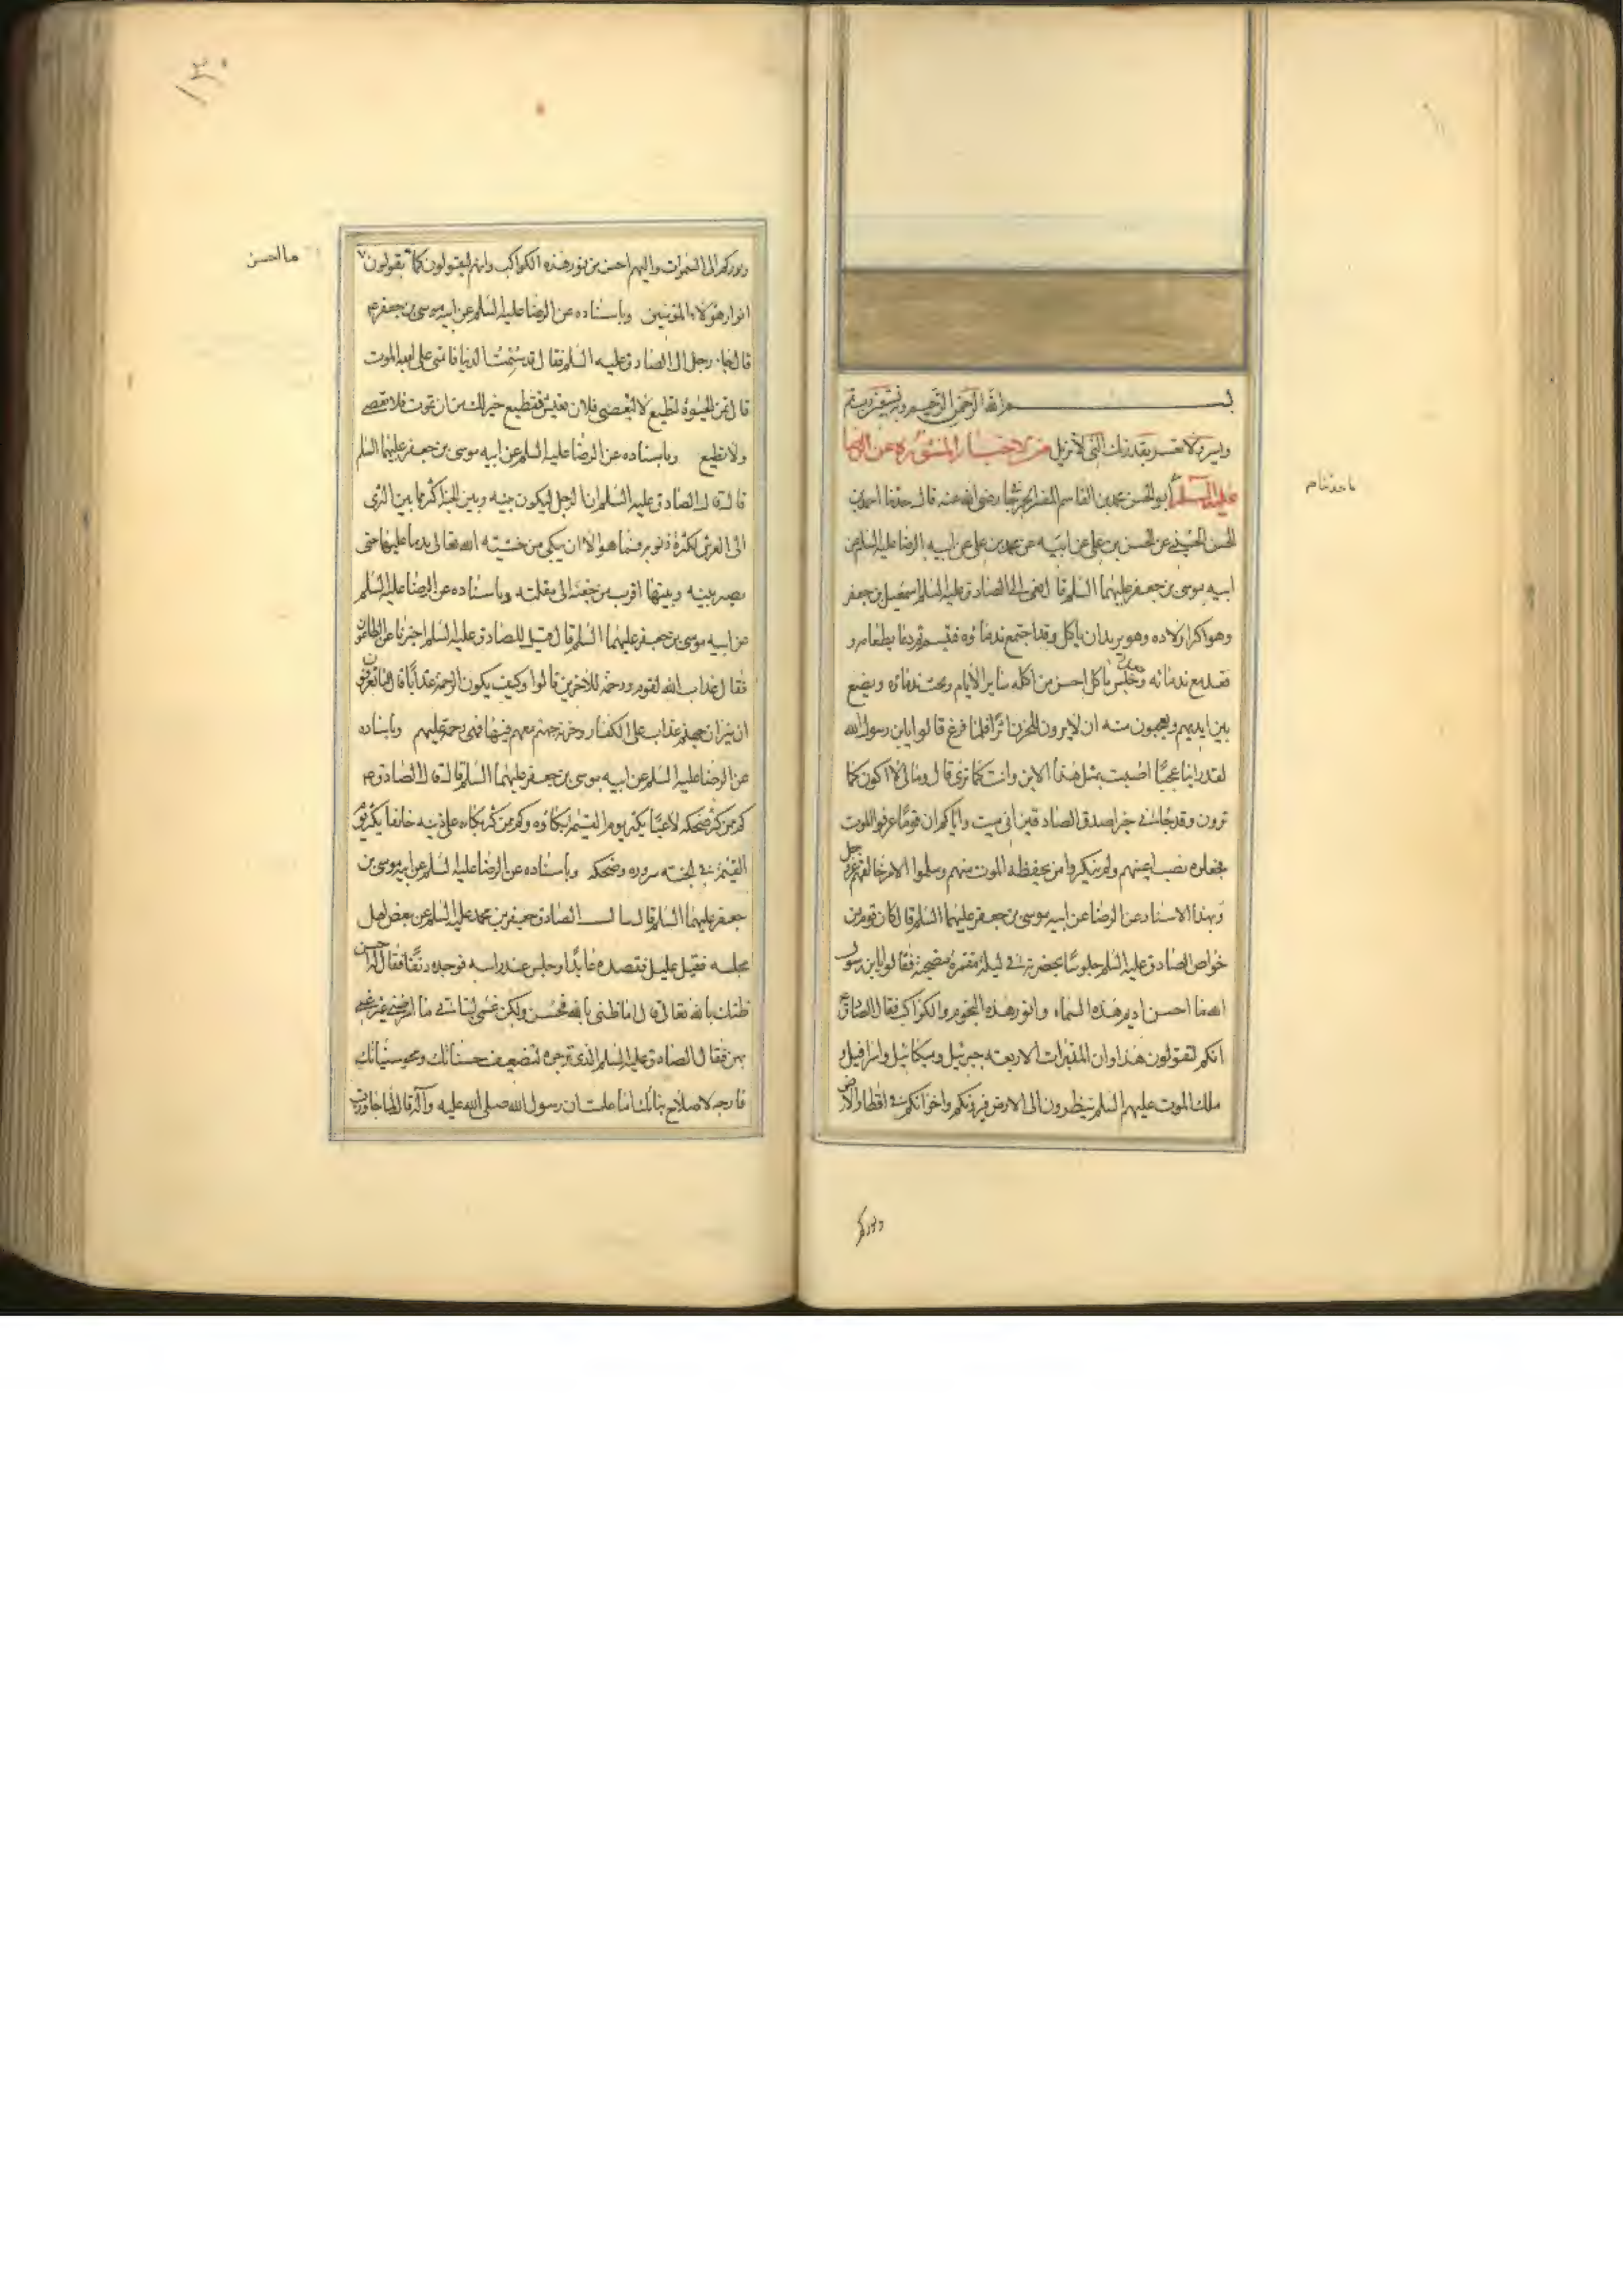 بسم الله الرحمن الرحيم وبه نستعين وتمم
ويسر ولا تعسر بقدرتك التي لا تزيل من الاخبار المنثورة عن الرضا
عليه السلم أبو الحسن محمد بن القاسم المفسر الجرجاني رضي الله عنه قال حدثنا احمد بن
الحسن الحسيني عن الحسن بن علي عن ابيه عن محمد بن علي عن ابيه الرضا عليه السلم عن
ابيه موسى بن جعفر عليهما السلم قال نعى الى الصادق عليه السلم اسمعيل بن جعفر
وهو اكبر اولاده وهو يريدان ياكل وقد اجتمع ندماؤه فتبسم ثم دعا بطعامه و
قعد مع ندمائه وجعل ياكل احسن من اكله ساير الأيام ويحث ندماؤه ويضع
بين ايديهم ويعجبون منه ان لا يرون للحزن اثرا فلما فرغ قالوا يابن رسول الله
لقد راينا عجبا اصبت بمثل هذا الابن وانت كما ترى قال ومالي لا اكون كما
ترون وقد جائني خبر اصدق الصادقين اني ميت واياكم ان قوما عرفوا الموت
فجعلوه نصب اعينهم ولم ينكروا من يخطفه الموت منهم وسلموا الامر خالقهم عز وجل
وبهذا الاسناد عن الرضا عن ابيه موسى بن جعفر عليهما السلم قال كان قوم من
خواص الصادق عليه السلم جلوسا بحضرته في ليلة مقمرة مصحية فقالوا يابن رسول
الله ما احسن اديم هذه السماء وانور هذه النجوم والكواكب فقال الصادق ع
انكم لتقولون هذا وان المدبرات الاربعة جبرئيل وميكائيل واسرافيل و
ملك الموت عليهم السلم ينظرون الى الارض فيرونكم واخوانكم في اقطار الارض
ونوركم
ونوركم الى السموات واليهم احسن من نور هذه الكواكب وانهم ليقولون كما تقولون
ما احسن
انوار هؤلاء المؤمنين وباسناده عن الرضا عليه السلم عن ابيه موسى بن جعفر ع
قال جاء رجل الى الصادق عليه السلم فقال قد سئمت الدنيا فاتمنى على الله الموت
قال تمن الحيوة لتطيع لا لتعصي فلان تعيش فتطيع خير لك من ان تموت فلا تعصي
ولا تطيع وباسناده عن الرضا عليه السلم عن ابيه موسى بن جعفر عليهما السلم
قال قال الصادق عليه السلم ان الرجل ليكون بينه وبين الجنة اكثر مما بين الثرى
الى العرش لكثرة ذنوبه فما هو الا ان يبكي من خشية الله تعالى ندما عليها حتى
يصير بينه وبينها اقرب من جفنه الى مقلته وباسناده عن الرضا عليه السلم
عن ابيه موسى بن جعفر عليهما السلم قال قيل للصادق عليه السلم اخبرنا عن الطاعون
فقال عذاب الله لقوم ورحمة للاخرين قالوا وكيف يكون الرحمة عذابا قال اما تعرفون
ان نيران جهنم عذاب على الكفار وخزنة جهنم معهم فيها فهي رحمة عليهم وباسناده
عن الرضا عليه السلم عن ابيه موسى بن جعفر عليهما السلم قال قال الصادق ع
كم من كثر ضحكه لاعبا يكثر يوم القيمة بكاؤه وكم من كثر بكاؤه على ذنبه خائفا يكثر يوم
القيمة في الجنة سروره وضحكه وباسناده عن الرضا عليه السلم عن ابيه موسى بن
جعفر عليهما السلم قال سال الصادق جعفر بن محمد عليه السلم عن بعض اهل
مجلسه فقيل عليل فقصده عائدا وجلس عند راسه فوجده دنفا فقال له احسن
ظنك بالله تعالى قال اما ظني بالله فحسن ولكن غمي لبناتي ما امرضني غير غمي
بهن فقال الصادق عليه السلم الذي ترجوه لتضعيف حسناتك ومحو سيئاتك
فارجه لاصلاح بناتك اما علمت ان رسول الله صلى الله عليه وآله قال لما جاوزت